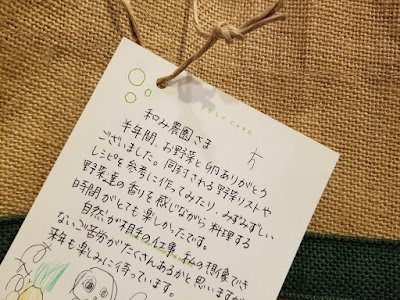 POST CARD
和み農園さま
半年間、お野菜と卵ありがとう
ございました。同封される野菜リストや
レシピを参考に作ってみたり、みずみずしい
野菜達の香りを感じながら料理する
時間がとても楽しかったです。
自然が相手のお仕事、私の想像でき
ないご苦労がたくさんあるかと思いますが
来年も楽しみに待っています。